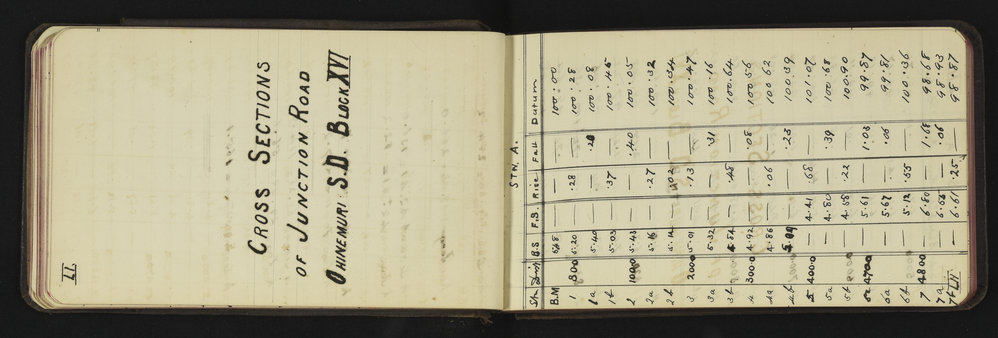 LI
CROSS SECTIONS
OF JUNCTION ROAD
OHINEMURI S.D. BLOCK XVI
STN. A.
Stn Dist B.S F.S. Rise Fall Datum
B.M 5.48 — — — 100.00
1 5.20 — .28 — 100.28
1a 5.40 — — .20 100.08
1b 5.03 — .37 — 100.45
2 1000 5.43 — — .40 100.05
2a 5.16 — .27 — 100.32
2b 5.14 — .02 — 100.34
3 2000 5.01 — .13 — 100.47
3a 5.32 — — .31 100.16
3b 4.84 — .48 — 100.64
4 3000 4.92 — — .08 100.56
4a 4.86 — .06 — 100.62
4b 5.09 — — .23 100.39
5 4000 — 4.41 .68 — 101.07
5a — 4.80 — .39 100.68
5b — 4.58 .22 — 100.90
4700 — 5.61 — 1.03 99.87
6a — 5.67 — .06 99.81
6b — 5.12 .55 — 100.36
7 4800 — 6.80 — 1.68 98.68
7a — — .06
7b — 6.61 .25 — 98.87
LII